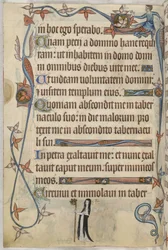 in hoc ego sperabo.
Unam petii a domino hanc requi
ram: ut inhabitem in domo domi
in omnibus diebus vite mee.
Ut videam voluntatem domini:
visitem templum eius.
Quoniam abscondit me in taber
naculo suo: in die malorum pro
texit me in abscondito tabernacu
li sui.
In petra exaltavit me: et nunc exal
tavit caput meum super inimicos
meos.
Circuivi et immolavi in taber